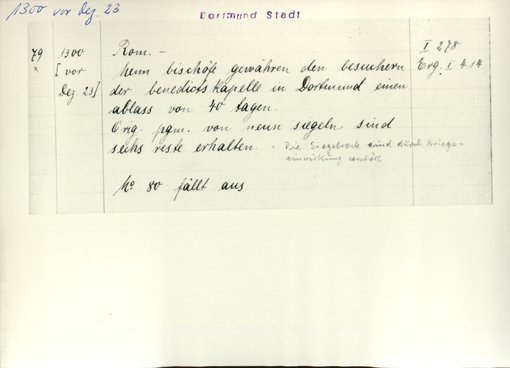 1300 vor Dez. 23
Dortmund Stadt
79 1300 Rom. – I 278
* [vor Neun bischöfe gewähren den besuchern Erg. I 414
Dez 23] der benedictskapelle in Dortmund einen
ablass von 40 tagen.
Orig. pgm. von neun siegeln sind
sechs reste erhalten. - Die Siegelreste sind durch Kriegs-
einwirkung zerstört
No 80 fällt aus